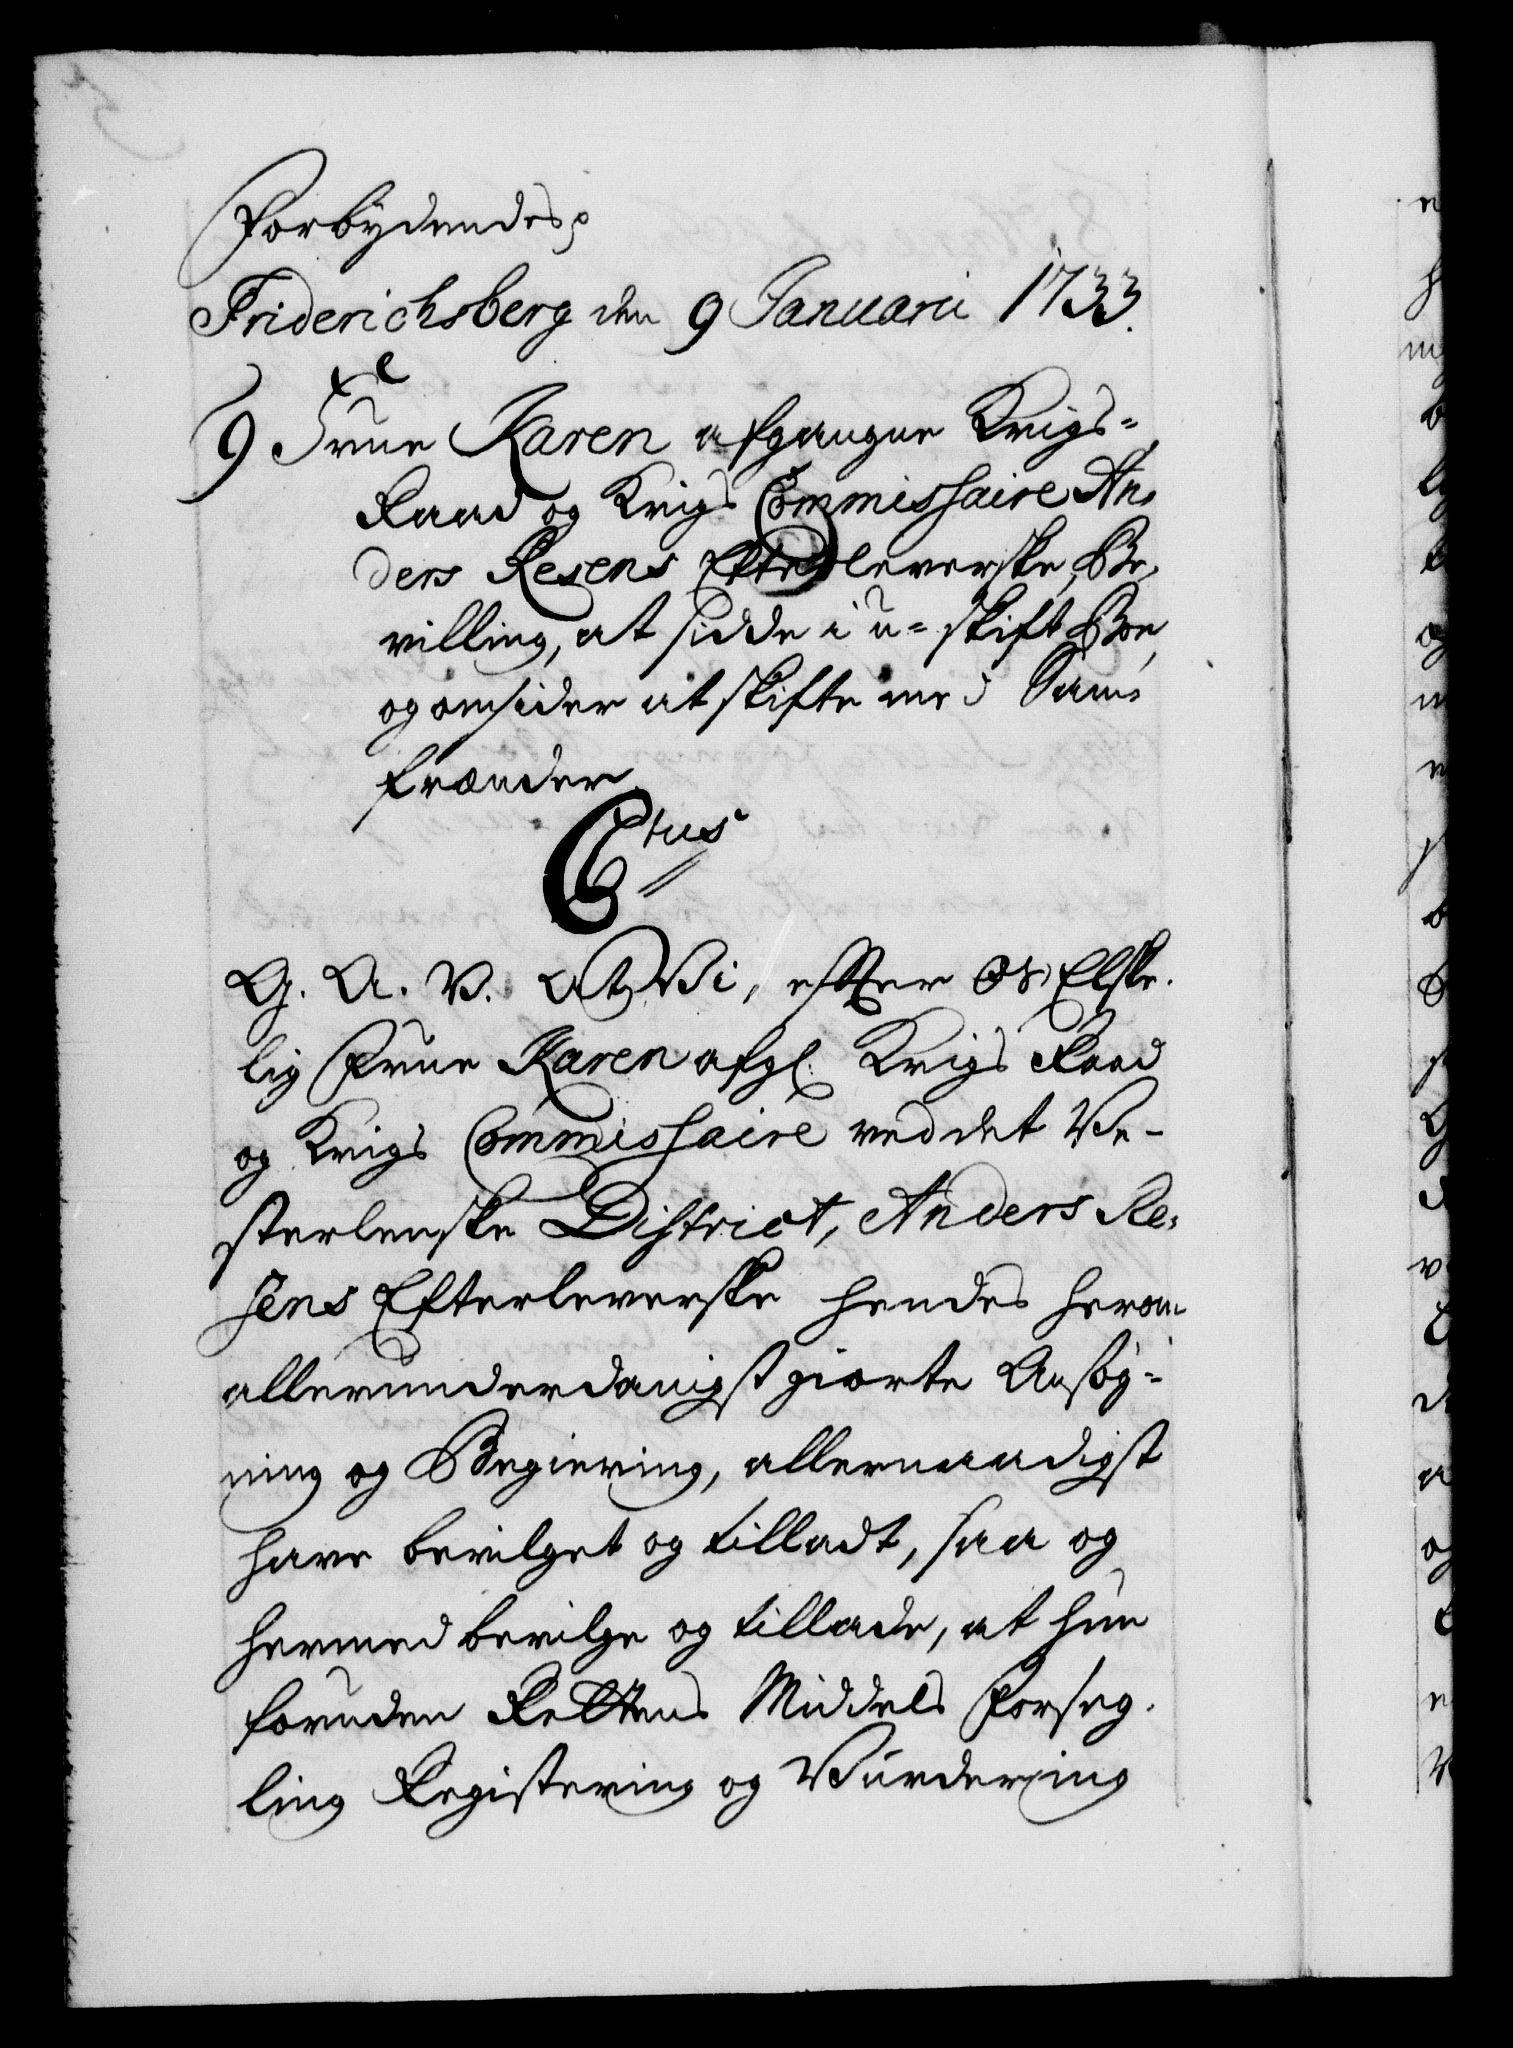 Forbydendes p
Friderichsberg den 9 Januarii 1733.
9 Frue Karen afgangne Krigs=
Raad og Krigs Commissaire An,
ders Resens Efterleverske, Be,
villing, at sidde i u=skift Boe,
og omsider at skifte med Sam,
frænder
Ctus
G. A. V. at Vi, efter Os Elske,
lig Frue Karen afgl. Krigs Raad
og Krigs Commissaire ved det Ve-
sterlenske District, Anders Re,
sens Efterleverske hendes herom
allerunderdanigst giorte Ansøg-
ning og Begiering, allernaadigst
have bevilget og tilladt, saa og
hermed bevilge og tillade, at hun
foruden Rettens Middels Forseg,
ling Registering og Vurdering